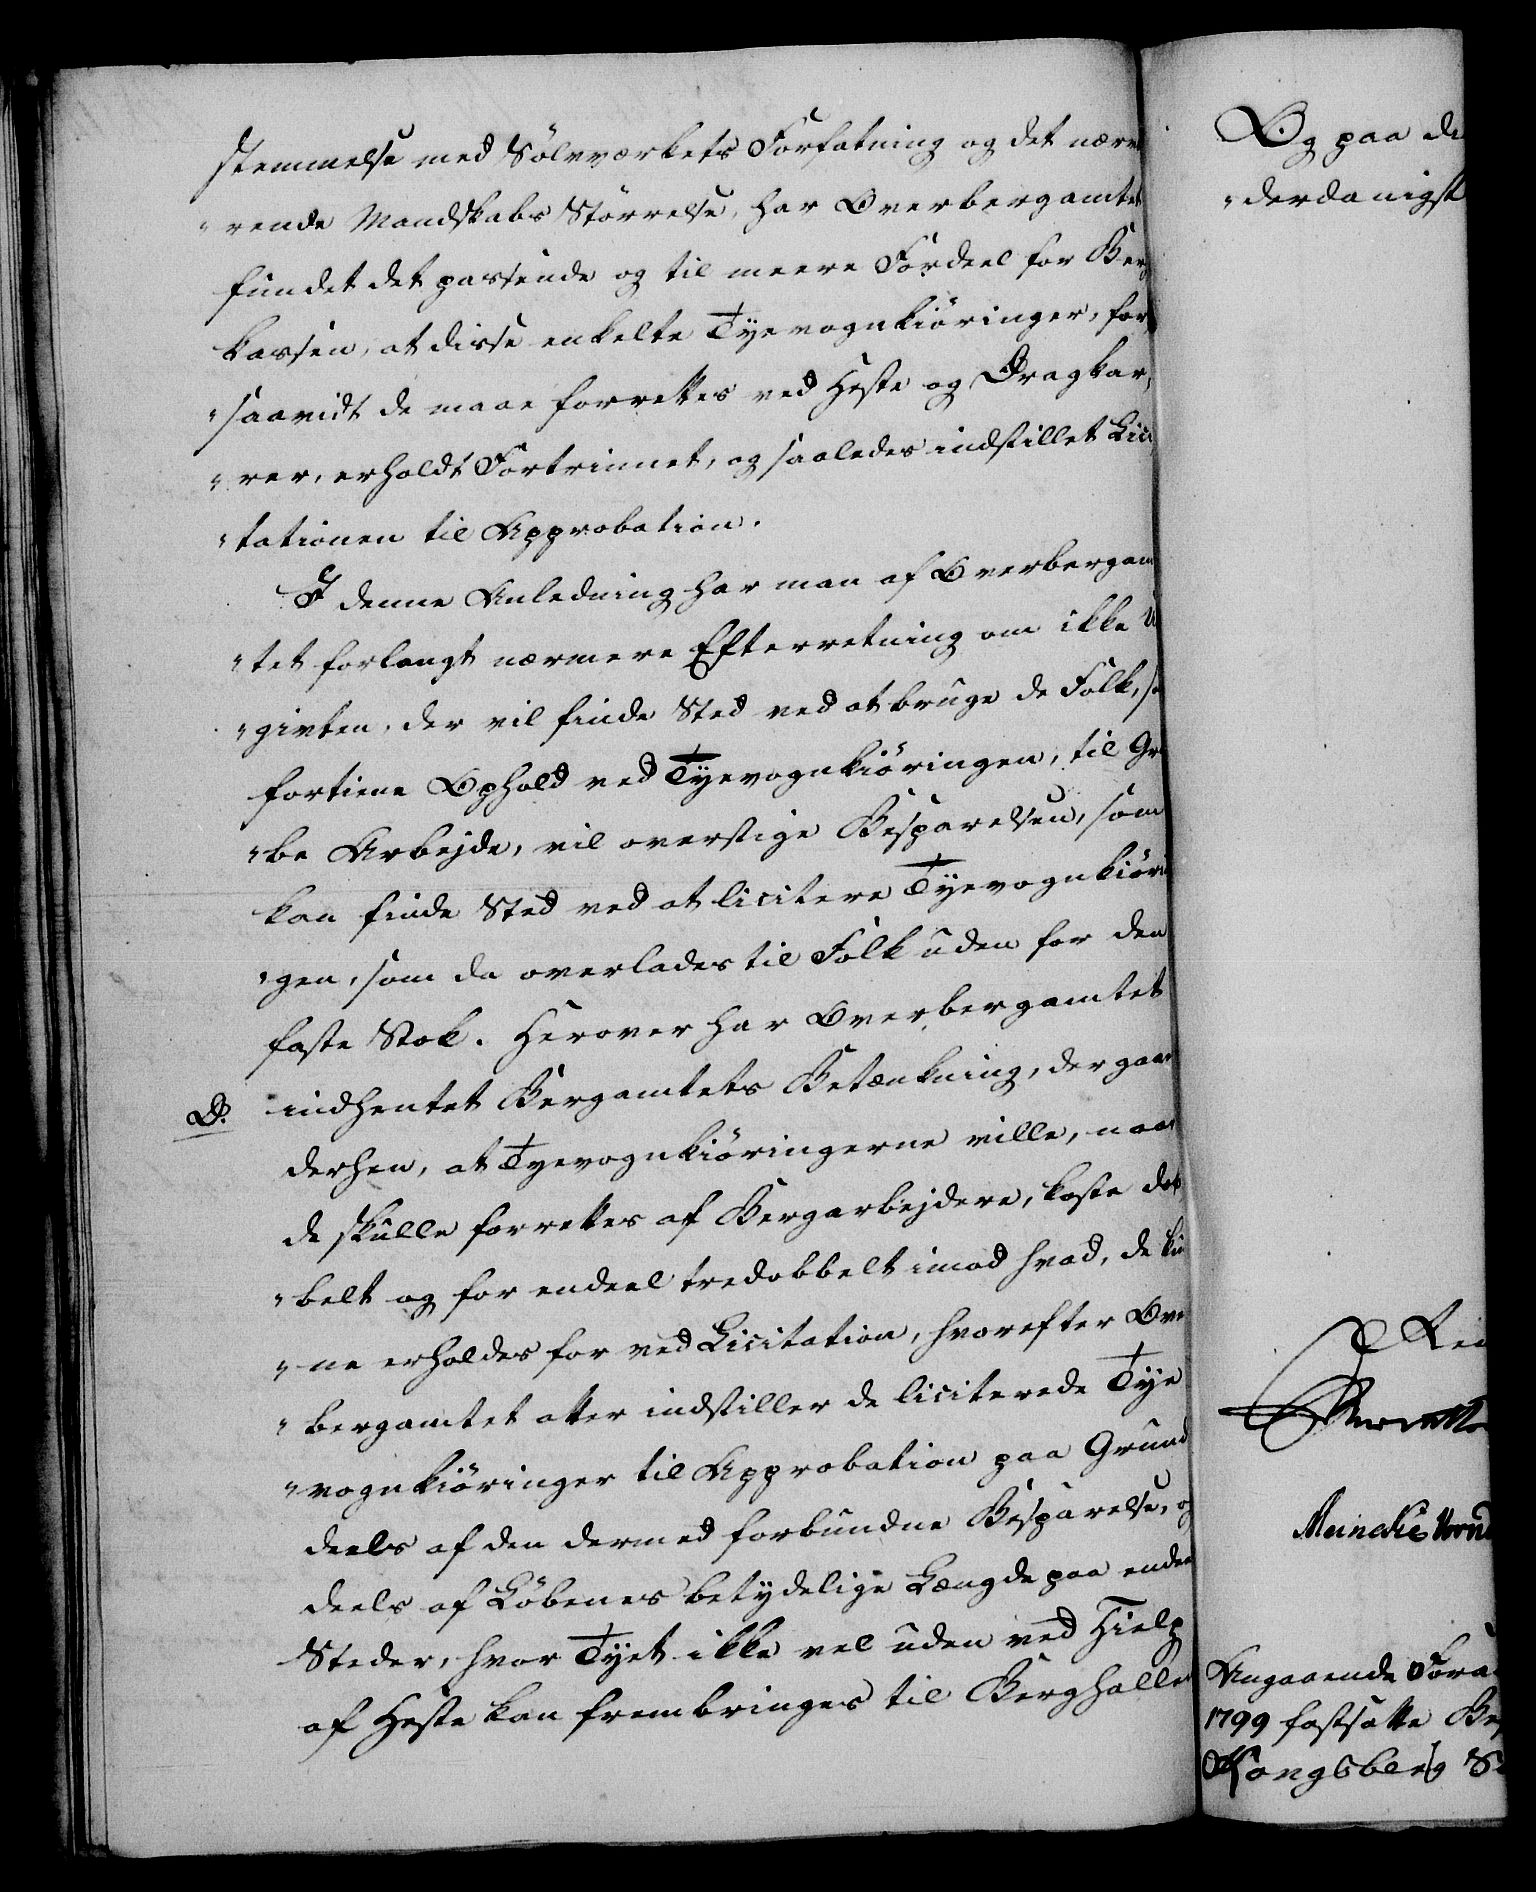 stemmelse med Sölvværkets Forfatning og det nærvæ
„rende Mandskabs Störrelse, har Overbergamtet
fundet det passende og til meere Fordeel for Berg
kassen, at disse enkelte Tÿevognkiöringer, for
„saavidt de maae forrettes ved Heste og Dragkar,
„rer, erholdt Fortrinnet, og saaledes indstillet Lici
„tationen til Approbation.
I denne Anledning har man af Overbergam
„tet forlangt nærmere Efterretning om ikke U
„givten, der vil finde Sted ved at bruge de Folk, so
fortiene Ophold ved Tÿevognkiöringen, til Gru
„be Arbejde, vil overstige Besparelsen, som
kan finde Sted ved at licitere Tÿevognkiörin
„gen, som da overlades til Folk uden for den
faste Stok. Herover har Overbergamtet
D. indhentet Bergamtets Betænkning, der gaar
derhen, at Tyevognkiöringerne ville, naar
de skulle forrettes af Bergarbejdere, koste dob
„belt og for endeel tredobbelt imod hvad, de kun
„ne erholdes for ved Licitation, hvorefter Over
„bergamtet atter indstiller de liciterede Tÿe
„vognkiöringer til Approbation paa Grund
deels af den dermed forbundne Besparelse, og
deels af Löbenes betÿdelige Længde paa endee
Steder, hvor Tÿet ikke vel uden ved Hielp
af Heste kan frembringes til Berghalle
Og paa de
„derdanigst
Rei
Meinche Vornd
Angaaende Fora
1799 fastsatte Be
Kongsberg S